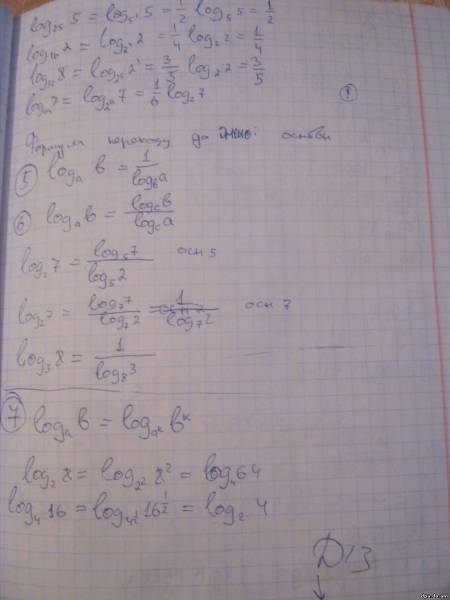 log₂₅ 5 = log₅² 5 = 1/2 log₅ 5 = 1/2
log₁₆ 2 = log₂⁴ 2 = 1/4 log₂ 2 = 1/4
log₃₂ 8 = log₂⁵ 2³ = 3/5 log₂ 2 = 3/5
7 = 7 = 1/6 log₂ 7
Формула переходу до іншої основи
⑤ logₐ b = 1/log_b a
⑥ logₐ b = log_c b/log_c a
log₂ 7 = log₅ 7/log₅ 2 осн 5
log₂ 7 = log₇ 7/log₇ 2 = 1/log₇ 2 осн 7
log₃ 8 = 1/log₈ 3
⑦ logₐ b = logₐᵏ bᵏ
log₂ 8 = log₂² 8² = log₄ 64
log₄ 16 = log₄^(1/2) 16^(1/2) = log₂ 4
Д/З